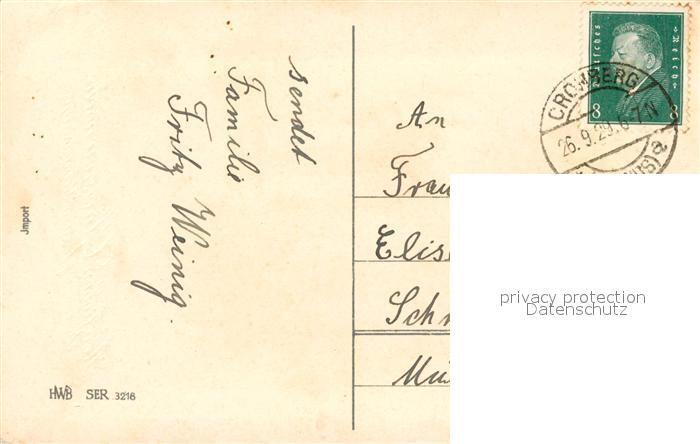 sendet
Familie
Fritz Weinig.
Import
HWB SER. 3216
Deutsches Reich
8 8
CRONBERG
26.9.29. 6-7 N
(TAUNUS) a
An
Frau
Elis
Sch
Mü
privacy protection
Datenschutz